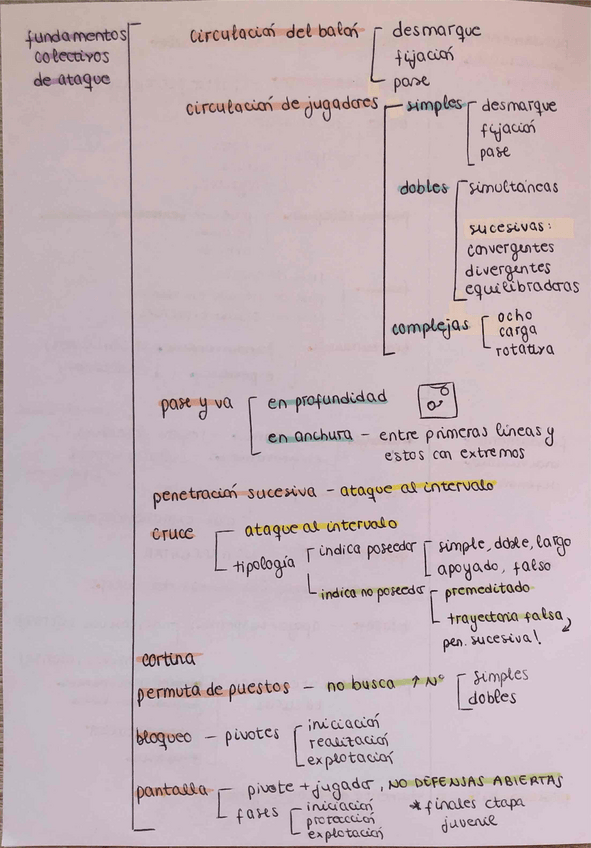 fundamentos
colectivos
de ataque
circulación del balón
desmarque
fijación
pase
circulación de jugadores
simples
desmarque
fijación
pase
dobles
simultáneas
sucesivas:
convergentes
divergentes
equilibradoras
complejas
ocho
carga
rotativa
pase y va
en profundidad
en anchura - entre primeras líneas y
estos con extremos
penetración sucesiva - ataque al intervalo
cruce
ataque al intervalo
tipología
indica poseedor
simple, doble, largo
apoyado, falso
indica no poseedor
premeditado
trayectoria falsa
pen. sucesiva!
cortina
permuta de puestos - no busca ↑ Nº
simples
dobles
bloqueo - pivotes
iniciación
realización
explotación
pantalla
pivote + jugador, NO DEFENSAS ABIERTAS
fases
iniciación
protección
explotación
* finales etapa
juvenil